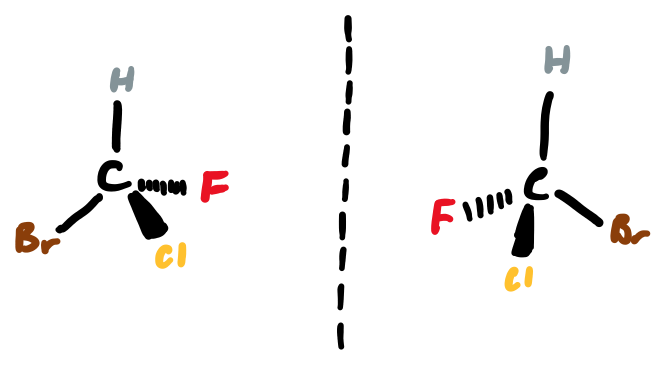 H
C
F
Br
Cl
H
C
F
Br
Cl